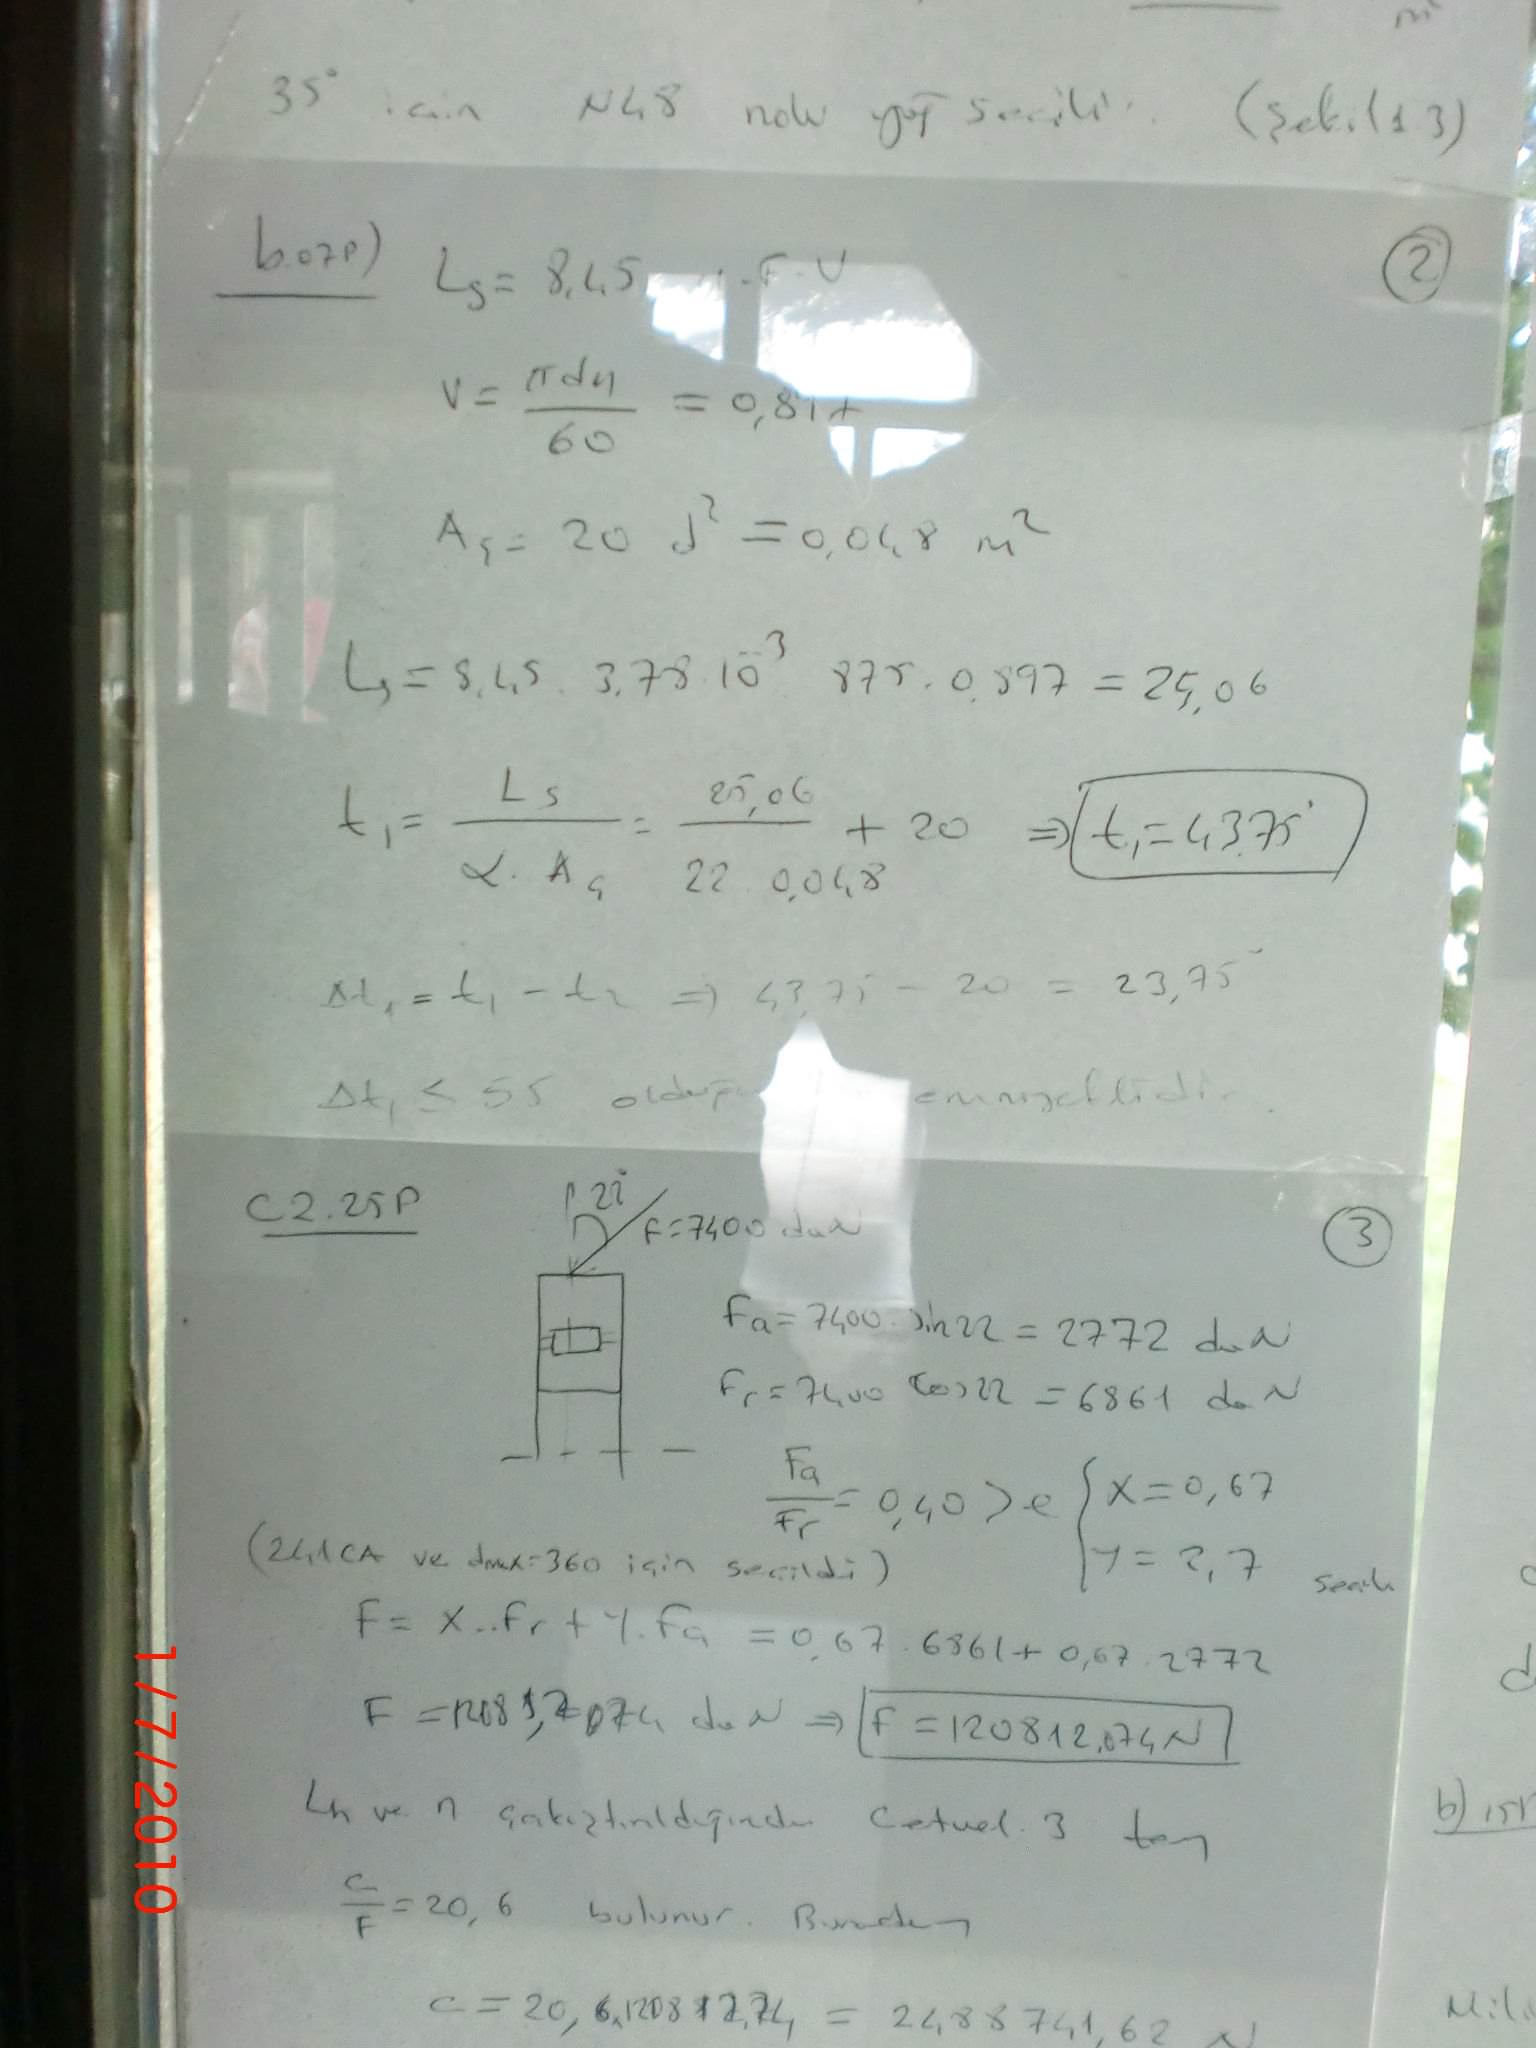 m²
35° için N48 nolu yağ seçilir. (Şekil 13)
b.07P) ②
Ls = 8,45 . F . V
V = πdn / 60 = 0,897
As = 20 d² = 0,048 m²
Ls = 8,45 . 3,78 . 10⁻³ 875 . 0,897 = 25,06
t₁ = Ls / α . As = 25,06 / 22 . 0,048 + 20 ⇒ t₁ = 43.75°
Δt₁ = t₁ - t₂ ⇒ 43,75 - 20 = 23,75°
Δt₁ ≤ 55 emniyetlidir.
C2.25P ③
22° F = 7400 daN
Fa = 7400 . sin22 = 2772 daN
Fr = 7400 cos22 = 6861 daN
Fa / Fr = 0,40 > e { X = 0,67
Y = 2,7
(241CA ve dmax=360 için seçildi)
F = X . . Fr + Y . Fa = 0,67 . 6861 + 0,67 . 2772
F = daN ⇒ F = 120812,074 N
Lh ve n çakıştırıldığında Cetvel. 3 ten
C / F = 20,6 bulunur. Buradan
C = 20,6.120812,74 = 2488741,62 N
b)
1/7/2010